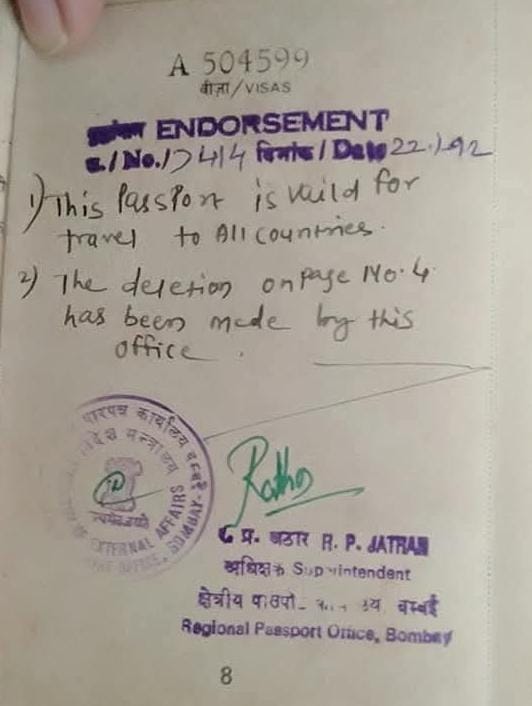 A 504599
वीज़ा/VISAS
ENDORSEMENT
सं./No./7414 दिनांक/Date 22.1.92
1) This Passport is vaild for
travel to All Countries.
2) The deletion on page No. 4
has been made by this
office.
पारपत्र कार्यालय बम्बई
विदेश मन्त्रालय
सत्यमेव जयते
OF EXTERNAL AFFAIRS
OFFICE, BOMBAY
R. P. JATHAR
अधिक्षक Superintendent
क्षेत्रीय बम्बई
Regional Passport Office, Bombay
8